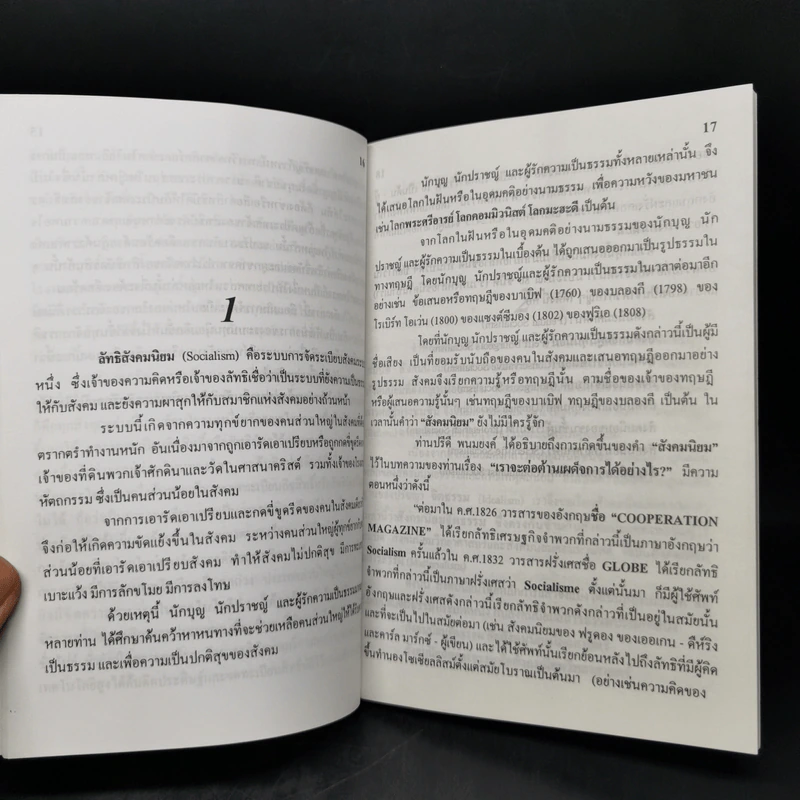 16
1
ลัทธิสังคมนิยม (Socialism) คือระบบการจัดระเบียบสังคมระบบ
หนึ่ง ซึ่งเจ้าของความคิดหรือเจ้าของลัทธิเชื่อว่าเป็นระบบที่ยังความเป็น
ให้กับสังคม และยังความผาสุกให้กับสมาชิกแห่งสังคมอย่างถ้วนหน้า
ระบบนี้เกิดจากความทุกข์ยากของคนส่วนใหญ่ในสังคมที่ต้อง
ตรากตรำทำงานหนัก อันเนื่องมาจากถูกเอารัดเอาเปรียบหรือถูกกดขี่ขูดรีด
เจ้าของที่ดินพวกเจ้าศักดินาและวัดในศาสนาคริสต์ รวมทั้งเจ้าของ
หัตถกรรม ซึ่งเป็นคนส่วนน้อยในสังคม
จากการเอารัดเอาเปรียบและกดขี่ขูดรีดของคนในสังคม
จึงก่อให้เกิดความขัดแย้งขึ้นในสังคม ระหว่างคนส่วนใหญ่ผู้ทุกข์ยาก
ส่วนน้อยที่เอารัดเอาเปรียบสังคม ทำให้สังคมไม่ปกติสุข มีการ
เบาะแว้ง มีการลักขโมย มีการลงโทษ
ด้วยเหตุนี้ นักบุญ นักปราชญ์ และผู้รักความเป็นธรรม
หลายท่าน ได้ศึกษาค้นคว้าหาหนทางที่จะช่วยเหลือคนส่วนใหญ่ให้ได้
เป็นธรรม และเพื่อความเป็นปกติสุขของสังคม
17
นักบุญ นักปราชญ์ และผู้รักความเป็นธรรมทั้งหลายเหล่านั้น จึง
ได้เสนอโลกในฝันหรือในอุดมคติอย่างนามธรรม เพื่อความหวังของมหาชน
เช่นโลกพระศรีอารย์ โลกคอมมิวนิสต์ โลกมะฮะดี เป็นต้น
จากโลกในฝันหรือในอุดมคติอย่างนามธรรมของนักบุญ นัก
ปราชญ์ และผู้รักความเป็นธรรมในเบื้องต้น ได้ถูกเสนอออกมาเป็นรูปธรรมใน
ทางทฤษฎี โดยนักบุญ นักปราชญ์และผู้รักความเป็นธรรมในเวลาต่อมาอีก
อย่างเช่น ข้อเสนอหรือทฤษฎีของบาเบิฟ (1760) ของบลองกี (1798) ของ
โรเบิร์ท โอเว่น (1800) ของแซงต์ซีมอง (1802) ของฟูริเอ (1808)
โดยที่นักบุญ นักปราชญ์ และผู้รักความเป็นธรรมดังกล่าวนี้เป็นผู้มี
ชื่อเสียง เป็นที่ยอมรับนับถือของคนในสังคมและเสนอทฤษฎีออกมาอย่าง
รูปธรรม สังคมจึงเรียกความรู้หรือทฤษฎีนั้น ตามชื่อของเจ้าของทฤษฎี
หรือผู้เสนอความรู้นั้นๆ เช่นทฤษฎีของบาเบิฟ ทฤษฎีของบลองกี เป็นต้น ใน
เวลานั้นคำว่า “สังคมนิยม” ยังไม่มีใครรู้จัก
ท่านปรีดี พนมยงค์ ได้อธิบายถึงการเกิดขึ้นของคำ “สังคมนิยม”
ไว้ในบทความของท่านเรื่อง “เราจะต่อต้านเผด็จการได้อย่างไร?” มีความ
ตอนหนึ่งว่าดังนี้
“ต่อมาใน ค.ศ.1826 วารสารของอังกฤษชื่อ “COOPERATION
MAGAZINE” ได้เรียกลัทธิเศรษฐกิจจำพวกที่กล่าวนี้เป็นภาษาอังกฤษว่า
Socialism ครั้นแล้วใน ค.ศ.1832 วารสารฝรั่งเศสชื่อ GLOBE ได้เรียกลัทธิ
จำพวกที่กล่าวนี้เป็นภาษาฝรั่งเศสว่า Socialisme ตั้งแต่นั้นมา ก็มีผู้ใช้ศัพท์
อังกฤษและฝรั่งเศสดังกล่าวนี้เรียกลัทธิจำพวกดังกล่าวที่เป็นอยู่ในสมัยนั้น
และที่จะเป็นไปในสมัยต่อมา (เช่น สังคมนิยมของ ฟรูดอง ของเออเกน - ดีห์ริง
และคาร์ล มาร์กซ์ - ผู้เขียน) และ ได้ใช้ศัพท์นั้นเรียกย้อนหลังไปถึงลัทธิที่มีผู้คิด
ขึ้นทำนองโซเซียลลิสม์ตั้งแต่สมัยโบราณเป็นต้นมา (อย่างเช่นความคิดของ